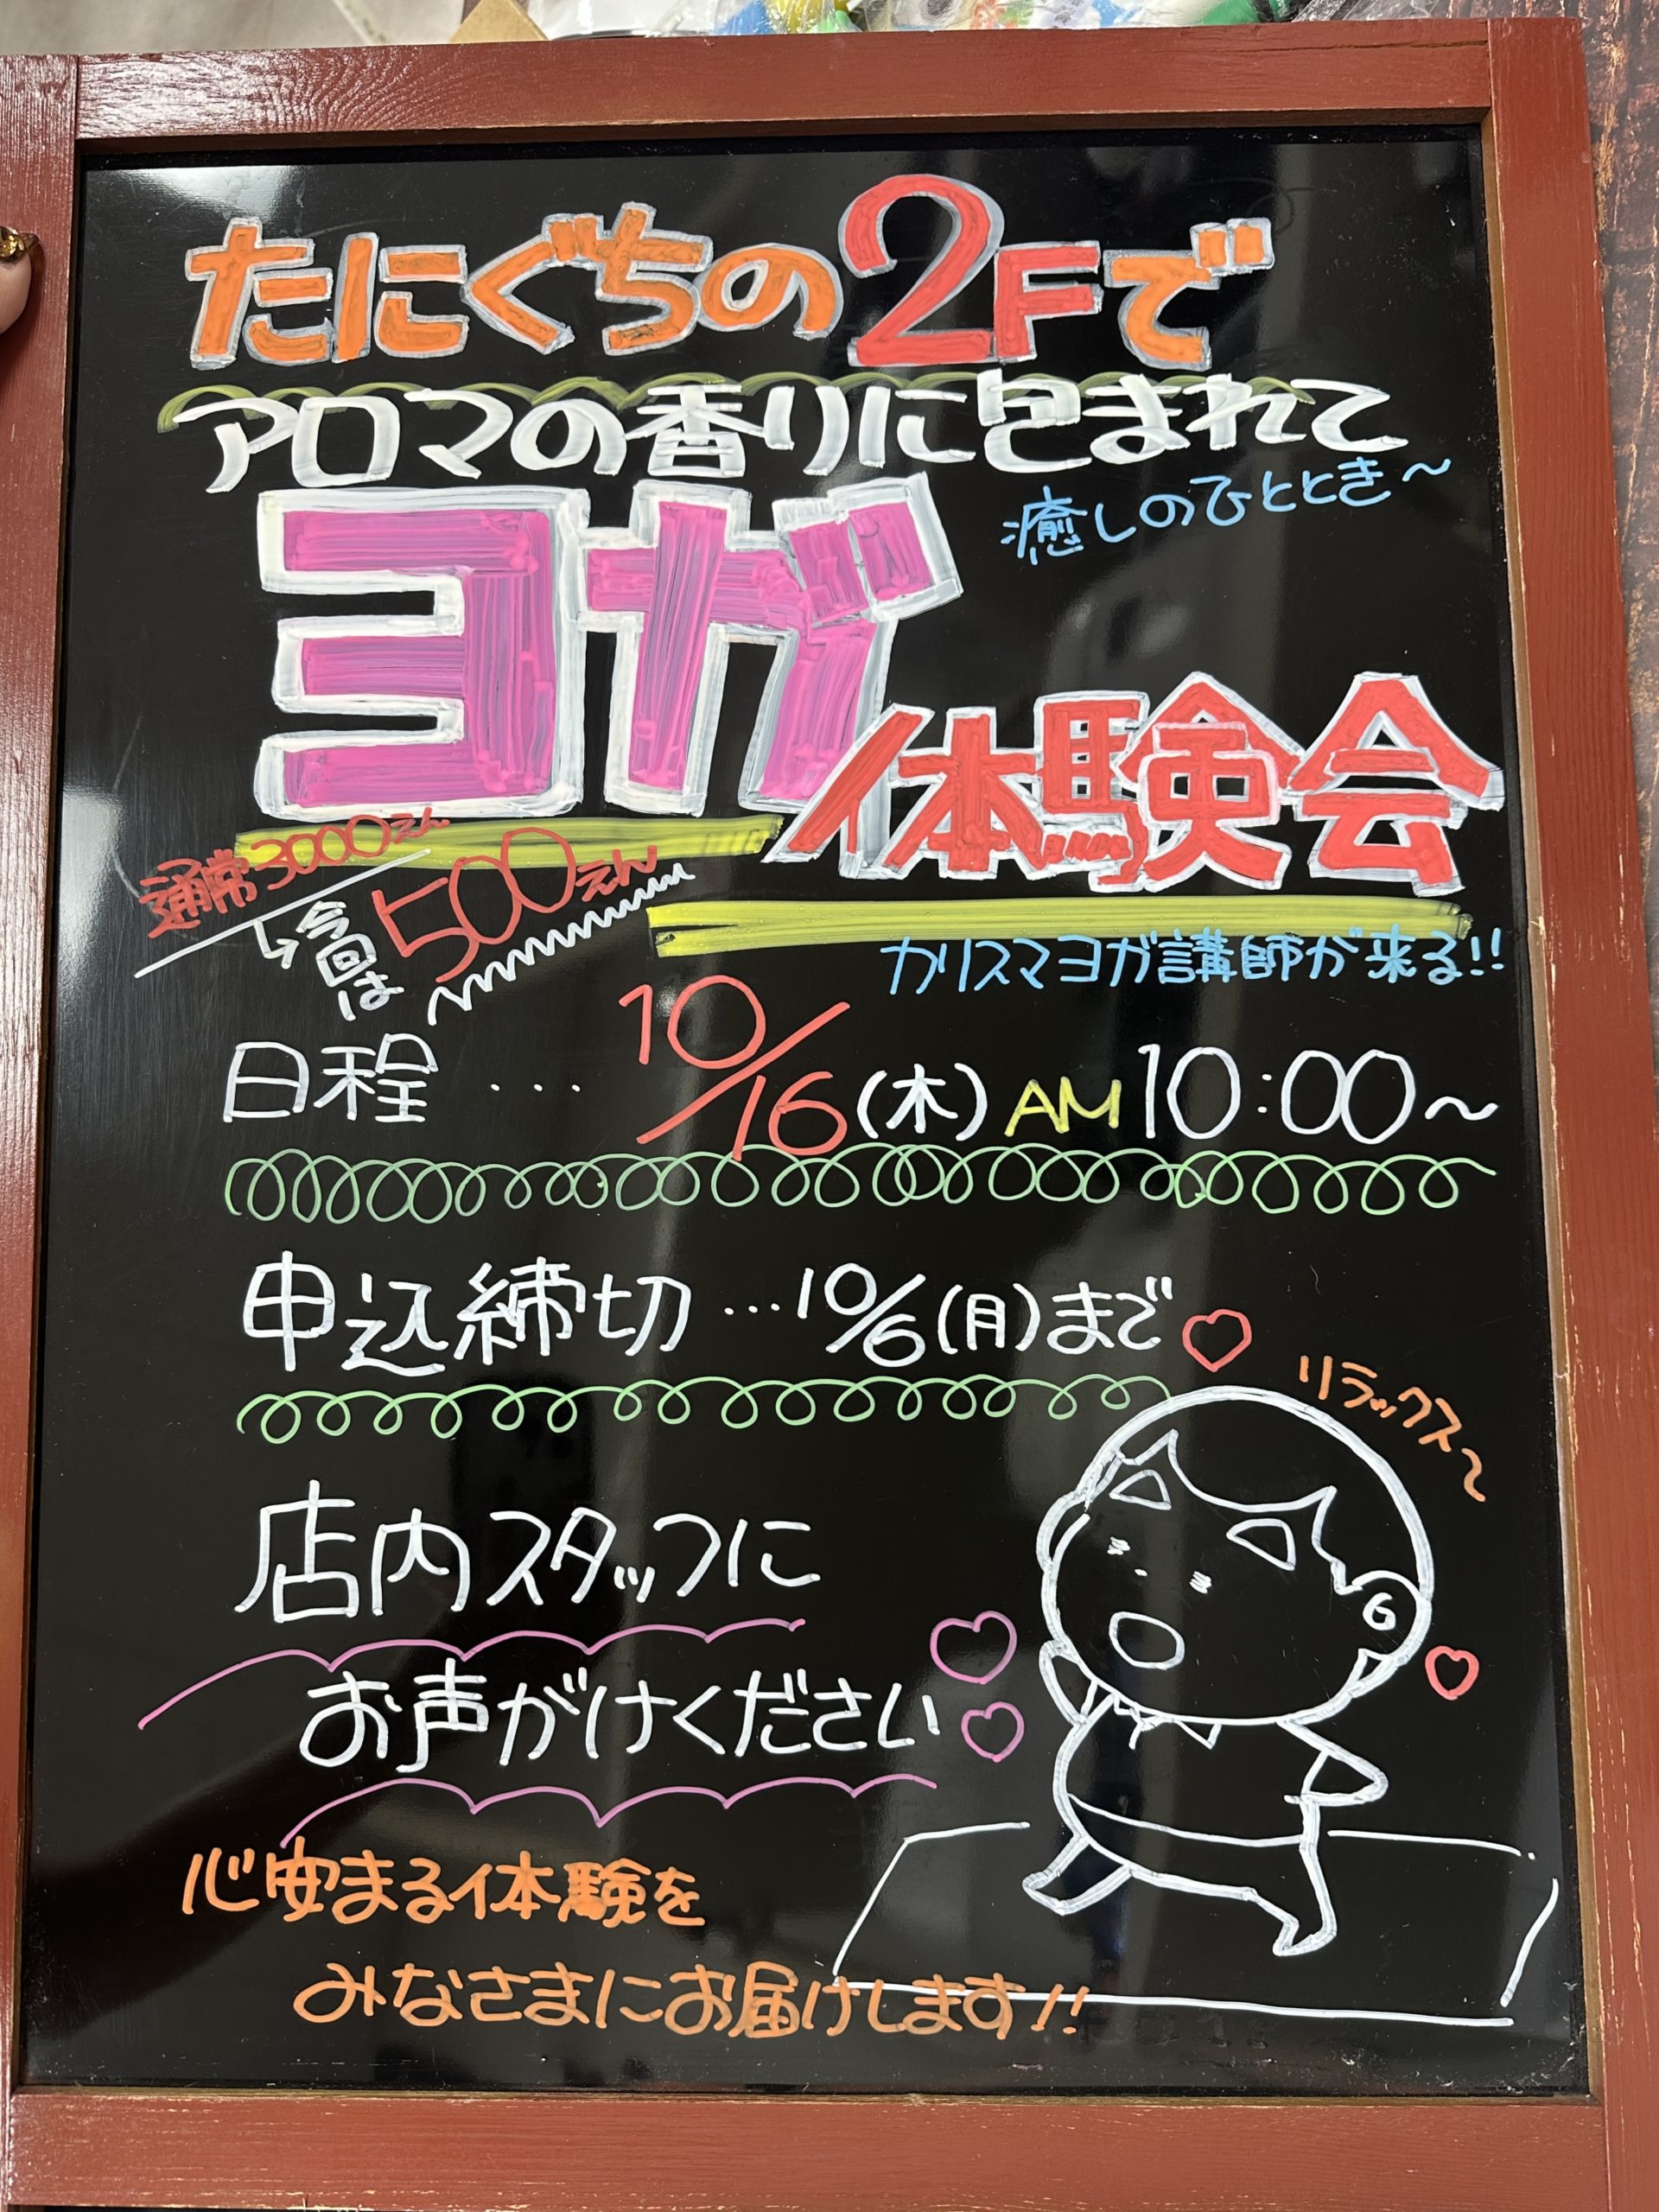 たにぐちの2Fで
アロマの香りに包まれて
癒しのひととき〜
ヨガ
体験会
通常3000えん
↳今回は500えん
カリスマヨガ講師が来る!!
日程…10/16(木)AM10:00〜
申込締切…10/6(月)まで♡
リラックス〜
店内スタッフに
お声がけください
心安まる体験を
みなさまにお届けします!!